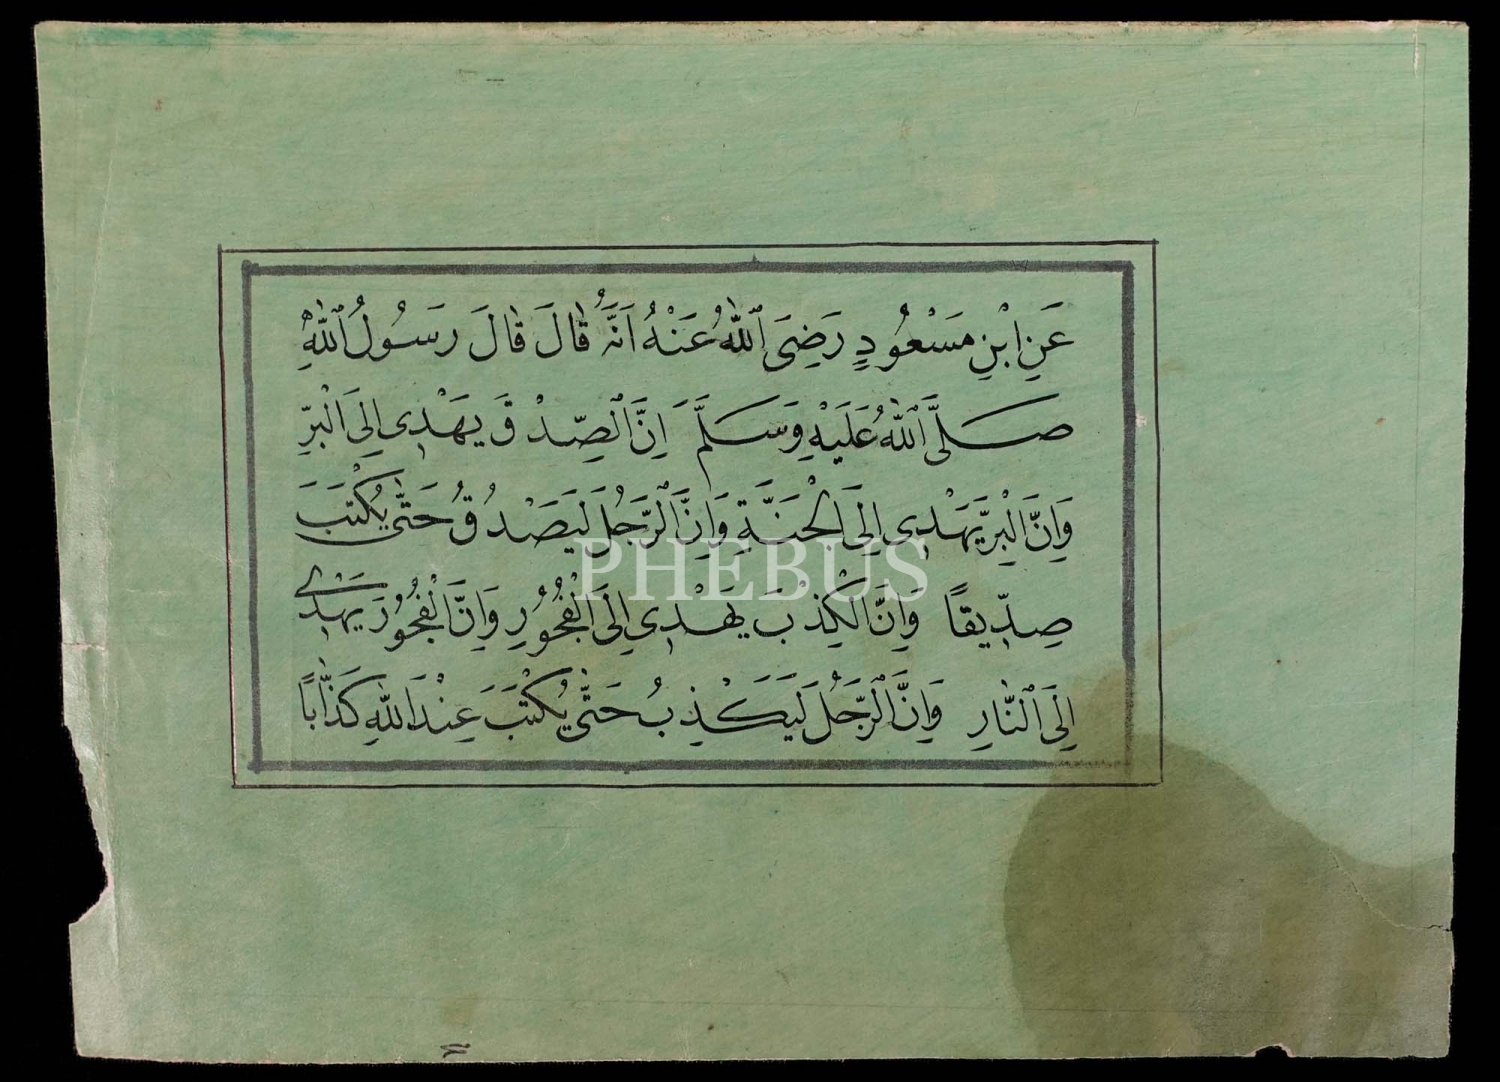 عَنِ ابْنِ مَسْعُودٍ رَضِيَ ٱللّٰهُ عَنْهُ اَنَّهُ قَالَ قَالَ رَسُولُ ٱللّٰهِ
صَلَّى ٱللّٰهُ عَلَيْهِ وَسَلَّمَ اِنَّ ٱلصِّدْقَ يَهْدِى اِلَى الْبِرِّ
وَاِنَّ الْبِرَّ يَهْدِى اِلَى الْجَنَّةِ وَاِنَّ ٱلرَّجُلَ لَيَصْدُقُ حَتّٰى يُكْتَبَ
PHEBUS
صِدِّيقًا وَاِنَّ الْكِذْبَ يَهْدِى اِلَى الْفُجُورِ وَاِنَّ الْفُجُورَ يَهْدِى
اِلَى ٱلنَّارِ وَاِنَّ ٱلرَّجُلَ لَيَكْذِبُ حَتّٰى يُكْتَبَ عِنْدَ اللّٰهِ كَذَّابًا